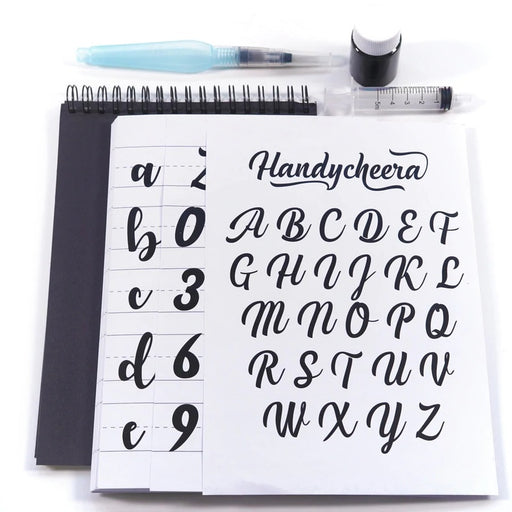 Handycheera
A B C D E F
G H I J K L
M N O P Q
R S T U V
W X Y Z
a
b 0
c 3
d 6
e 9
5 4 3 2 1